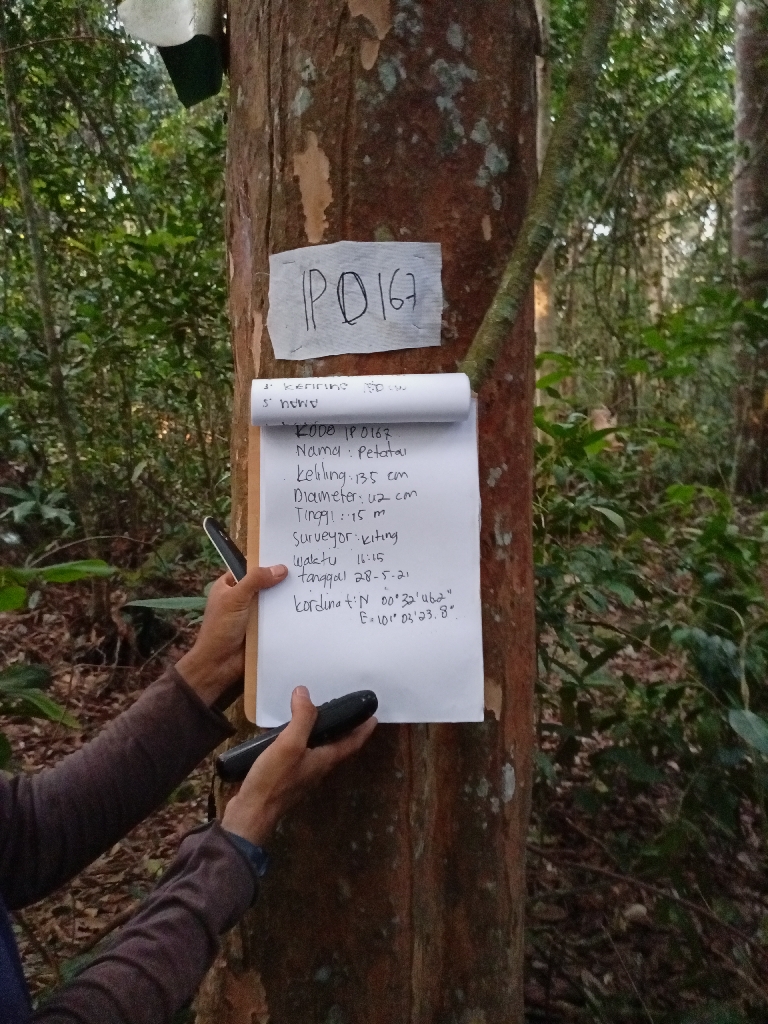 IPD167
5 nawa
Kode IPD167
Nama : Petatai
Keliling : 135 cm
Diameter : 42 cm
Tinggi : 15 m
Surveyor : Kiting
Waktu 16:15
tanggal 28-5-21
Kordinat : N 00° 32' 46.2"
E = 101° 03' 23.8"